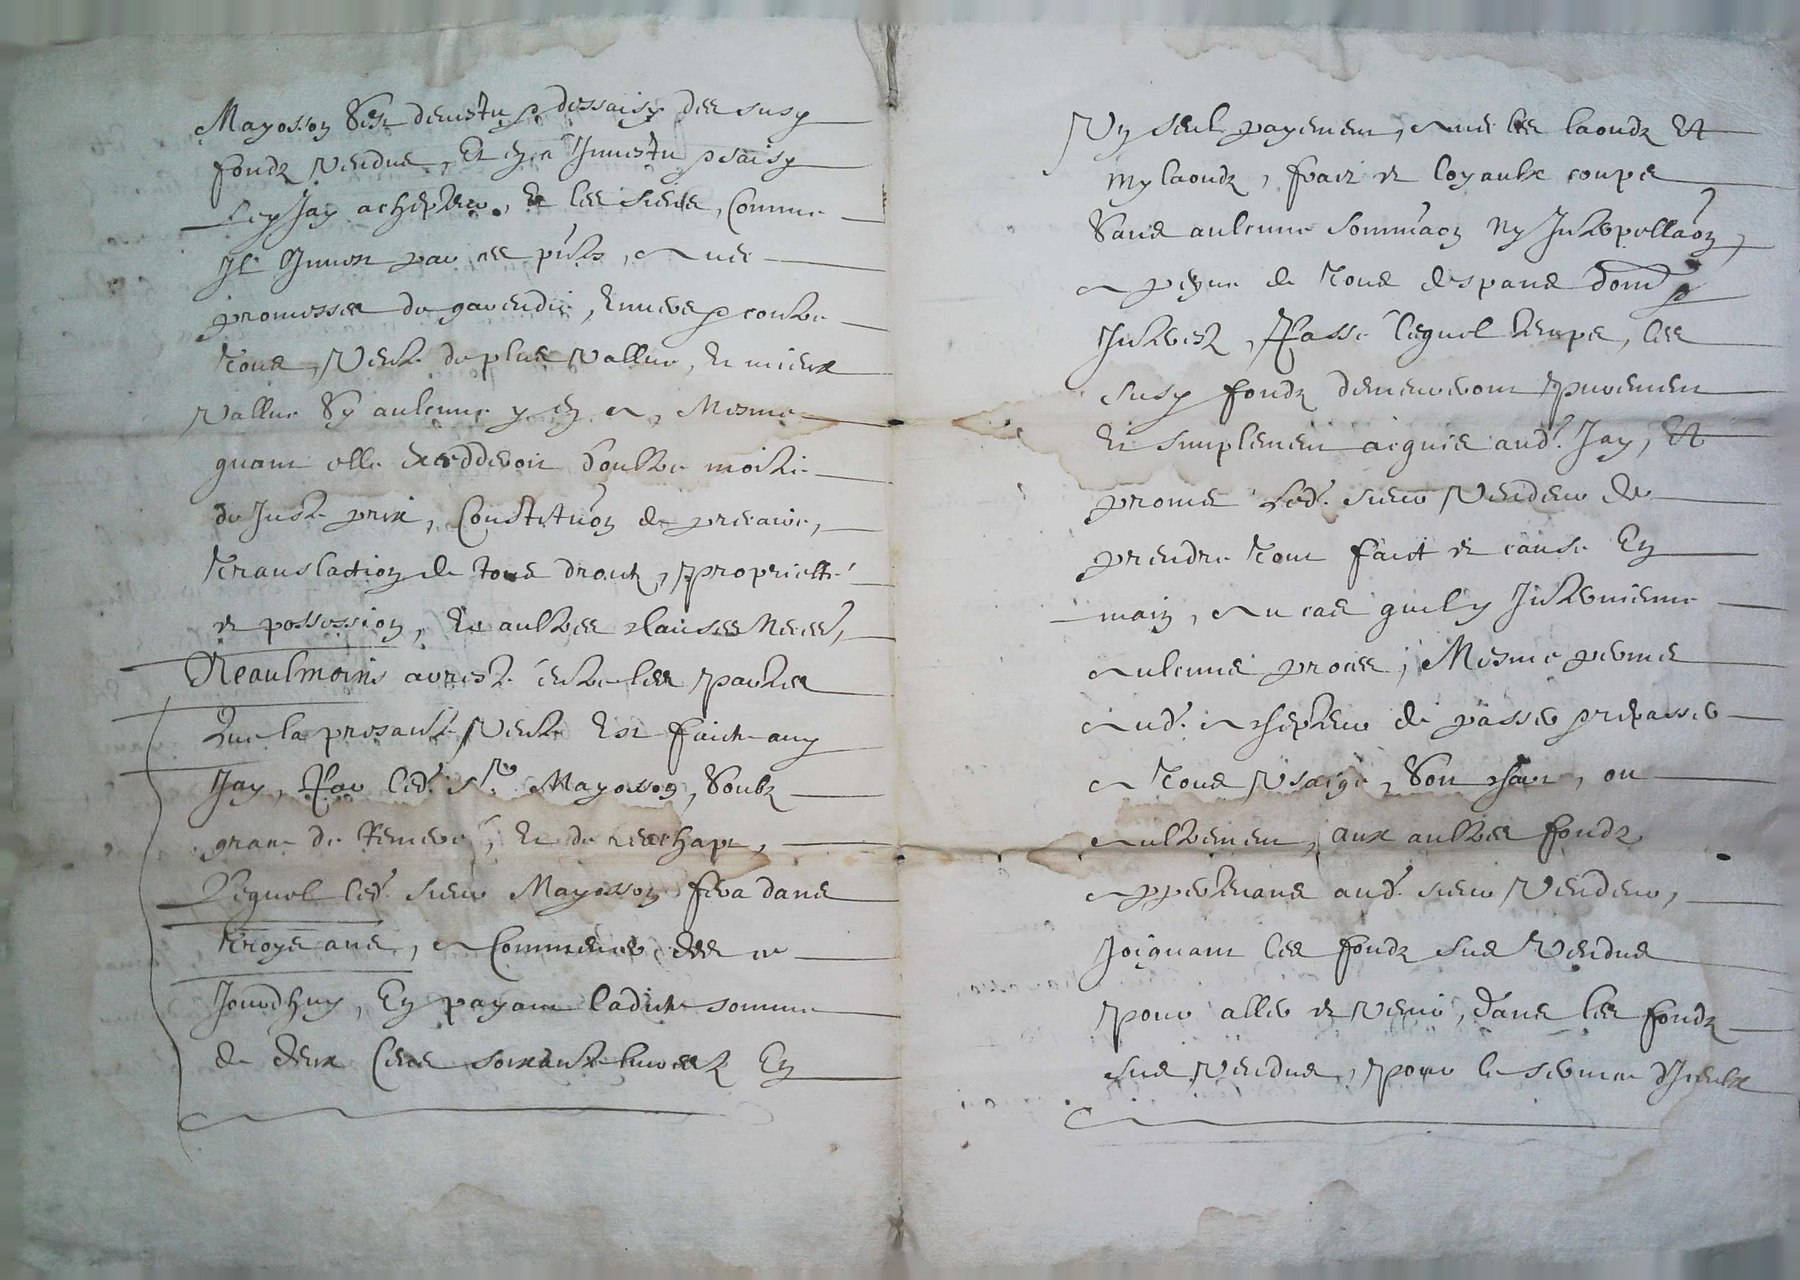 Mayosson s'est devestu & dessaisy des susd
fondz vendus, Et en a Investu & saisy
led Jay achepteur, & les siens, Comme
Il Invest par ces pñtes, avec
promesses de garendie, envers & contre
tous, Vente de plus vallue, et mieux
vallue sy aulcune y en a, Mesme
quant elle excedderoit d'oultre moitie
du Juste prix, Constituõn de precaire,
translaction de tous droitz, proprietté
et possession, Et aultres clauses neces.
Neaulmoins arresté entre les parties
Que la presante Vente Est faicte aud
Jay, Par led. sr. Mayosson, soubz
grace de remeré, et de reachapt,
Lequel led. sieur Mayosson fera dans
troys ans, a Commencer des ce
Jourdhuy, En payant ladicte somme
de deux Cens soixante livres En
Un seul payement, avec les laoudz Et
mylaoudz, fraiz et loyaulx coupz
sans aulcune sommaõn ny Interpellaõn,
a peyne de tous despans dom &
Interestz, Passé lequel temps, les
susd fondz demeureront purement
et simplement acquis aud. Jay, Et
promet led. sieur Vendeur de
prendre tout faict et cause En
main, au cas qu'il y Intervienne
aulcune proces, Mesme permet
aud. achepteur de passer & repasser
a tous usaige, son char, ou
aultrement, aux aultres fondz
appertenans aud. sieur Vendeur,
Joignant les fondz sus Vendus
pour aller et venir, dans les fondz
sus vendus, pour le service d'Iceulx